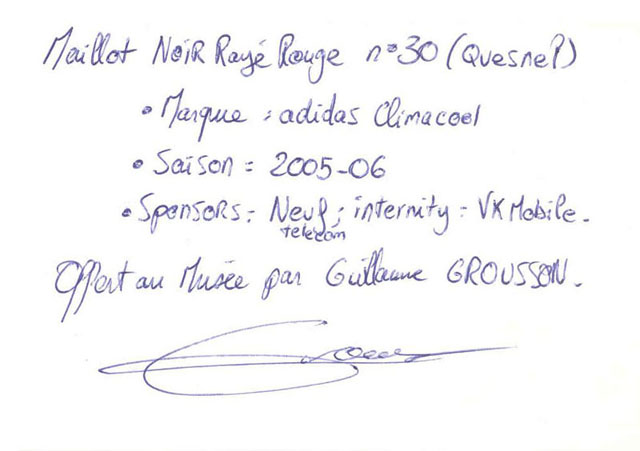 Maillot NOIR Rayé Rouge n°30 (Quesnel)
• Marque : adidas Climacool
• Saison = 2005-06
• Sponsors : Neuf ; internity - VK Mobile.
telecom
Offert au Musée par Guillaume GROUSSON.